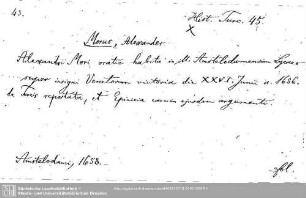 43.
Hist. Turc. 45
X
Morus, Alexander
Alexandri Mori oratio habita in Amstelodamensium Lyceo
super insigni Venetorum victoria die XXVI. Junii a. 1656.
de Turcis reportata, et Epinicia carmen ejusdem argumenti.
Amstelodami, 1658.
Sächsische Landesbibliothek -
Staats- und Universitätsbibliothek Dresden